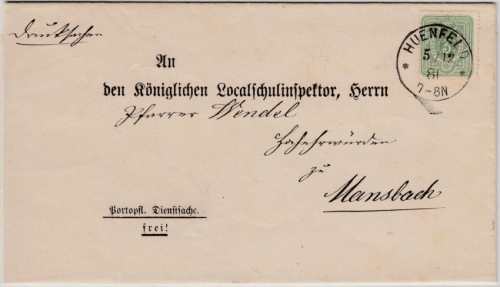 Drucksachen
An
den Königlichen Localschulinspektor, Herrn
Pfarrer Wendel
Hochehrwürden
zu
Mansbach
Portopfl. Dienstsache.
frei!
HUENFELD
5 12
81
7-8N